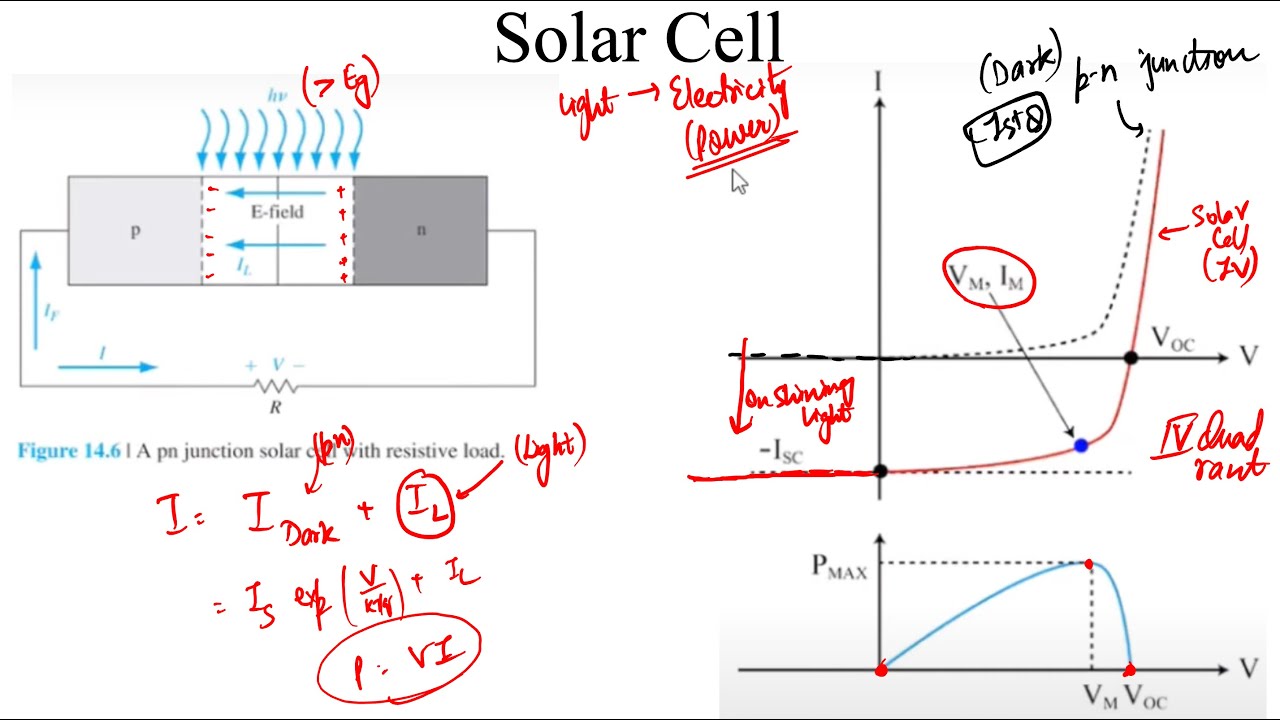 Solar Cell
hν
(> Eg)
Light → Electricity
(Power)
p
E-field
I_L
n
I_F
I
+ V −
R
Figure 14.6 | A pn junction solar cell with resistive load.
(pn)
(Light)
I = I_Dark + I_L
= I_S exp (V/kT/q) + I_L
P = VI
I
(Dark) p-n junction
(Ist Q)
Solar
Cell
(IV)
V_M, I_M
V_OC
V
on shining
light
-I_SC
IV Quad
rant
P_MAX
V
V_M V_OC